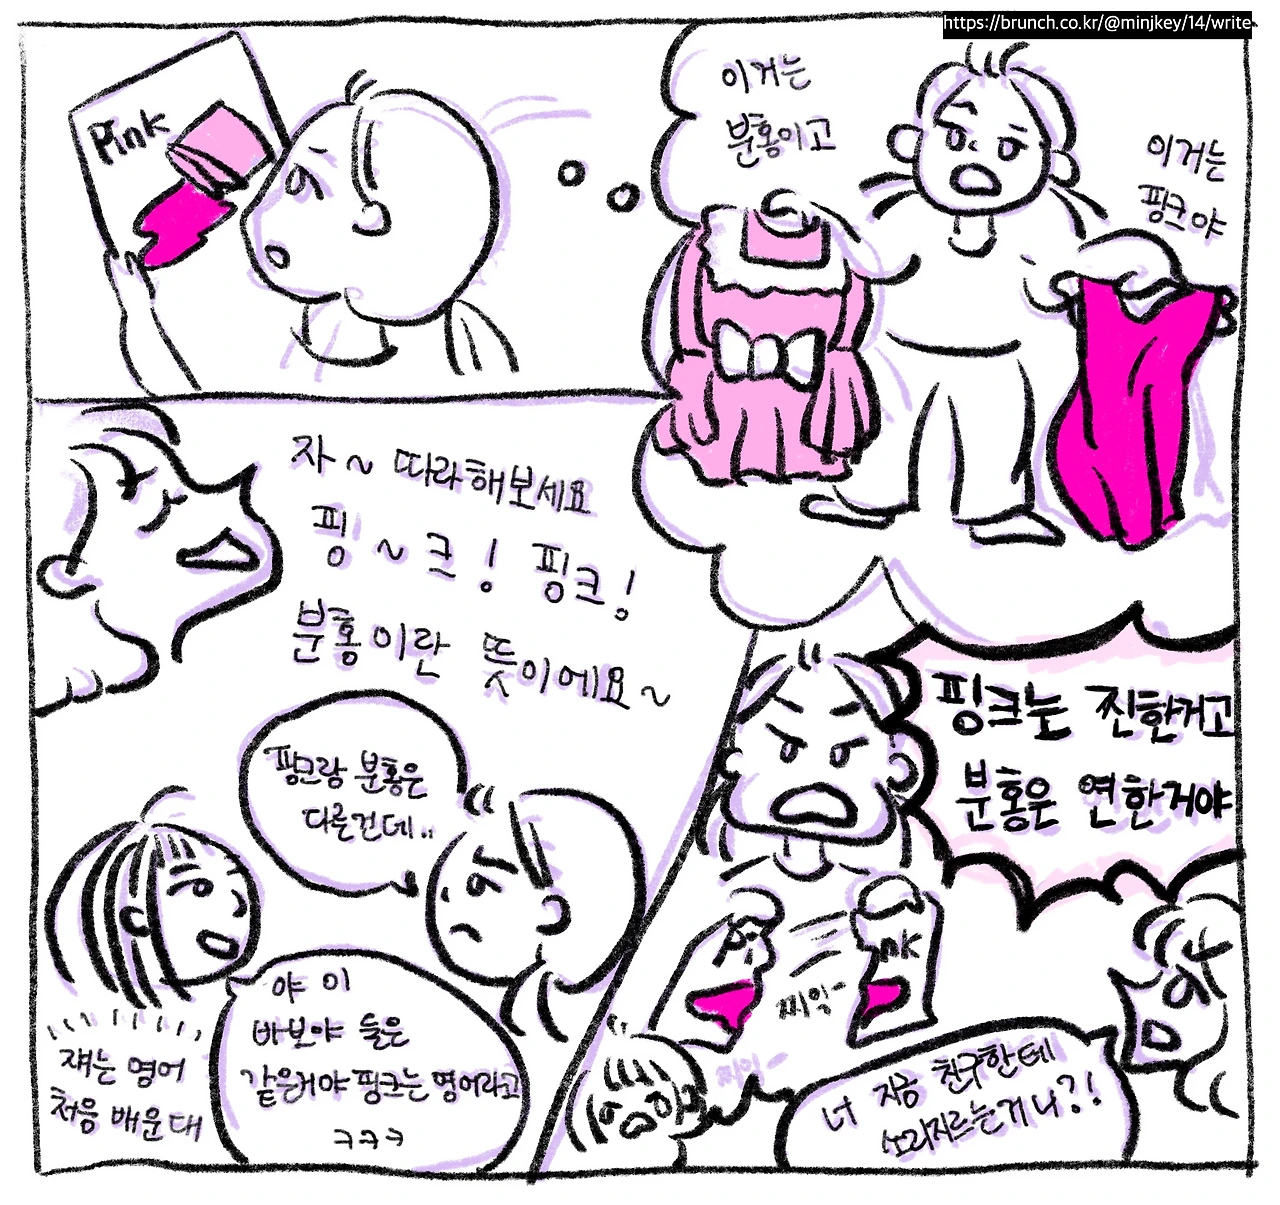 https://brunch.co.kr/@minjkey/14/write
Pink
이거는
분홍이고
이거는
핑크야
자~ 따라해보세요
핑~크! 핑크!
분홍이란 뜻이에요~
핑크랑 분홍은
다른건데..
야 이
바보야 둘은
같은거야 핑크는 영어라고
ㅋㅋㅋ
쟤는 영어
처음 배운대
핑크는 찐한거고
분홍은 연한거야
nk
찌익-
찌익-
너 지금 친구한테
소리지르는거니?!